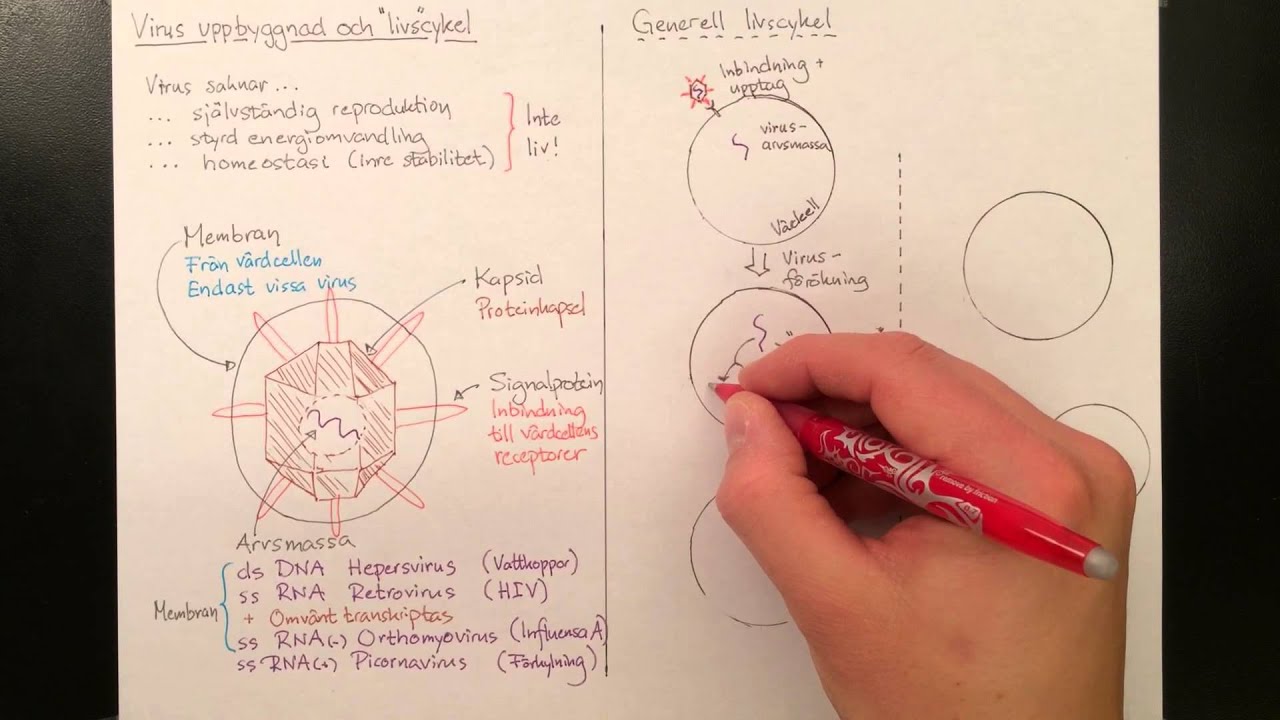 Virus uppbyggnad och "livs"cykel
Virus saknar...
... självständig reproduktion
... styrd energiomvandling
... homeostasi (inre stabilitet)
Inte
liv!
Membran
Från värdcellen
Endast vissa virus
Kapsid
Proteinkapsel
Signalprotein
Inbindning
till värdcellens
receptorer
Arvsmassa
Membran
ds DNA Hepersvirus (Vattkoppor)
ss RNA Retrovirus (HIV)
+ Omvänt transkriptas
ss RNA(-) Orthomyovirus (Influensa A)
ss RNA(+) Picornavirus (Förkylning)
Generell livscykel
Inbindning +
upptag
virus-
arvsmassa
Värdcell
Virus-
förökning
remove by friction
0.7